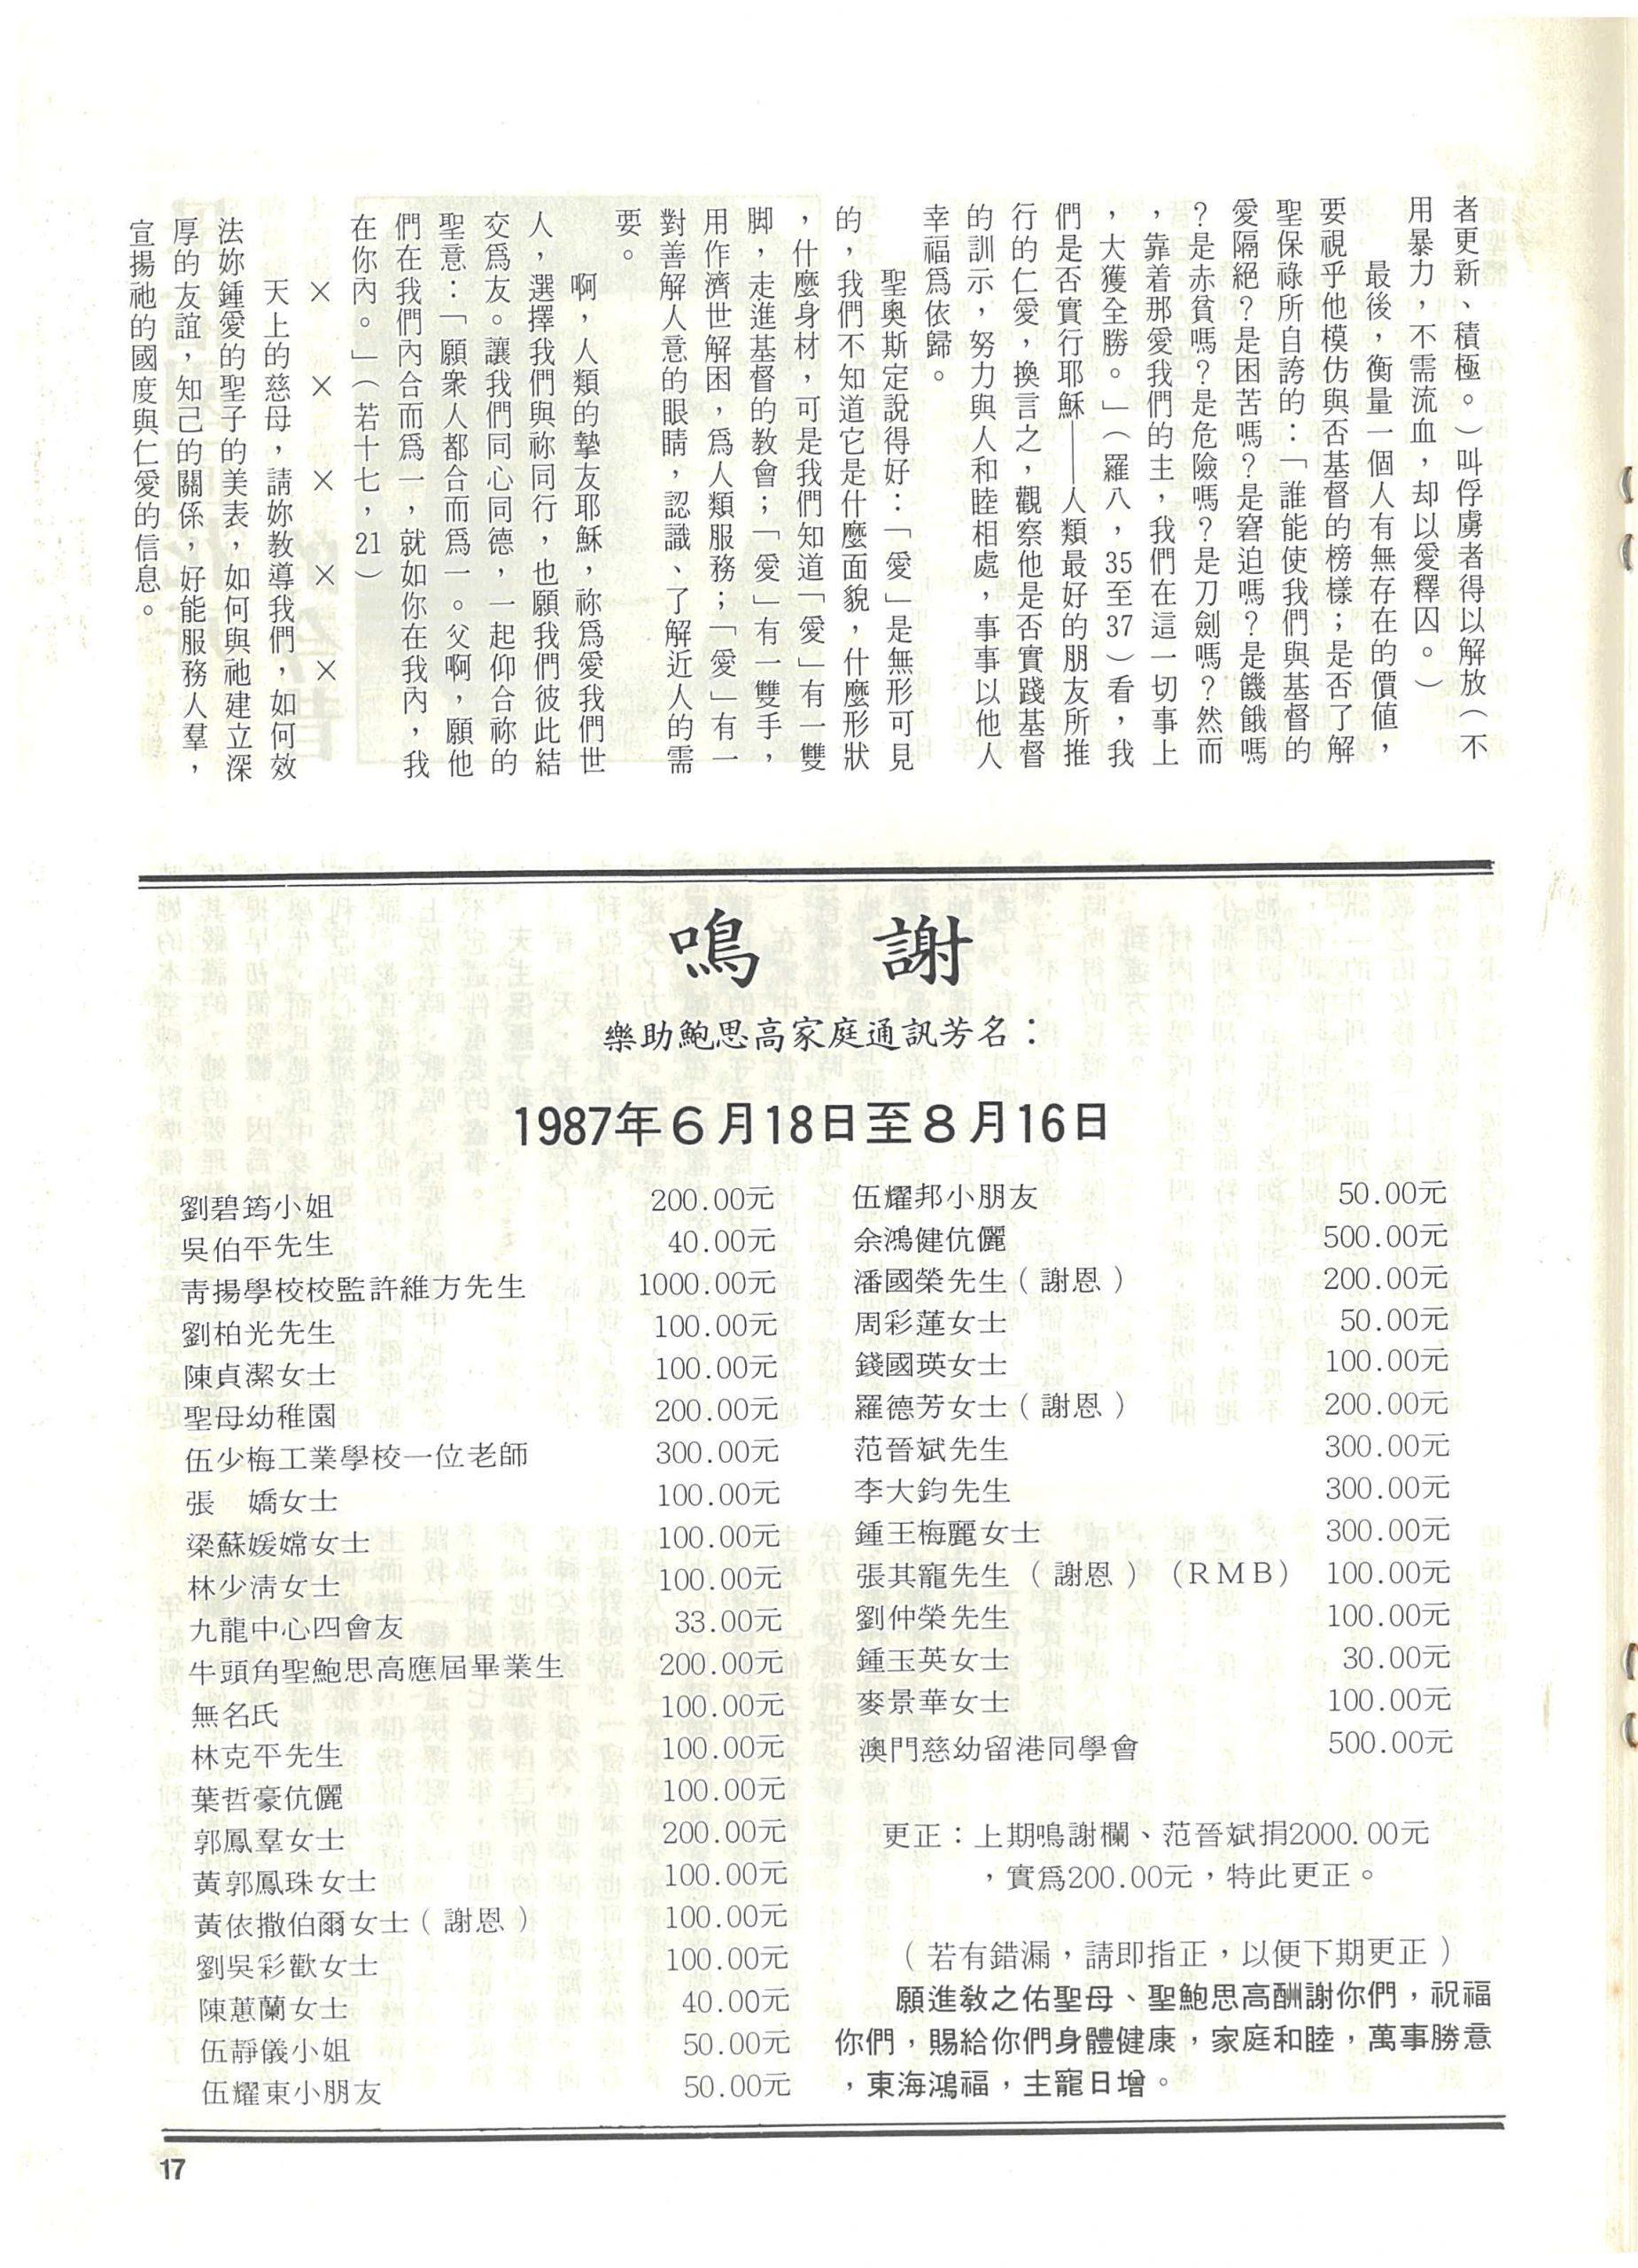 者更新、積極。）叫俘虜者得以解放（不
用暴力，不需流血，却以愛釋囚。）
最後，衡量一個人有無存在的價值，
要視乎他模仿與否基督的榜樣；是否了解
聖保祿所自誇的：「誰能使我們與基督的
愛隔絕？是困苦嗎？是窘迫嗎？是饑餓嗎
？是赤貧嗎？是危險嗎？是刀劍嗎？然而
，靠着那愛我們的主，我們在這一切事上
，大獲全勝。」（羅八，35至37）看，我
們是否實行耶穌——人類最好的朋友所推
行的仁愛，換言之，觀察他是否實踐基督
的訓示，努力與人和睦相處，事事以他人
幸福爲依歸。
聖奧斯定說得好：「愛」是無形可見
的，我們不知道它是什麼面貌，什麼形狀
，什麼身材，可是我們知道「愛」有一雙
脚，走進基督的教會；「愛」有一雙手，
用作濟世解困，爲人類服務；「愛」有一
對善解人意的眼睛，認識、了解近人的需
要。
啊，人類的摯友耶穌，祢爲愛我們世
人，選擇我們與祢同行，也願我們彼此結
交爲友。讓我們同心同德，一起仰合祢的
聖意：「願衆人都合而爲一。父啊，願他
們在我們內合而爲一，就如你在我內，我
在你內。」（若十七，21）
× × × × ×
天上的慈母，請妳教導我們，如何效
法妳鍾愛的聖子的美表，如何與祂建立深
厚的友誼，知己的關係，好能服務人羣，
宣揚祂的國度與仁愛的信息。
鳴 謝
樂助鮑思高家庭通訊芳名：
1987年6月18日至8月16日
劉碧筠小姐 200.00元
吳伯平先生 40.00元
青揚學校校監許維方先生 1000.00元
劉柏光先生 100.00元
陳貞潔女士 100.00元
聖母幼稚園 200.00元
伍少梅工業學校一位老師 300.00元
張　嬌女士 100.00元
梁蘇媛嫦女士 100.00元
林少清女士 100.00元
九龍中心四會友 33.00元
牛頭角聖鮑思高應屆畢業生 200.00元
無名氏 100.00元
林克平先生 100.00元
葉哲豪伉儷 100.00元
郭鳳羣女士 200.00元
黃郭鳳珠女士 100.00元
黃依撒伯爾女士（謝恩） 100.00元
劉吳彩歡女士 100.00元
陳蕙蘭女士 40.00元
伍靜儀小姐 50.00元
伍耀東小朋友 50.00元
伍耀邦小朋友 50.00元
余鴻健伉儷 500.00元
潘國榮先生（謝恩） 200.00元
周彩蓮女士 50.00元
錢國瑛女士 100.00元
羅德芳女士（謝恩） 200.00元
范晉斌先生 300.00元
李大鈞先生 300.00元
鍾王梅麗女士 300.00元
張其寵先生（謝恩）（RMB） 100.00元
劉仲榮先生 100.00元
鍾玉英女士 30.00元
麥景華女士 100.00元
澳門慈幼留港同學會 500.00元
更正：上期鳴謝欄、范晉斌捐2000.00元
，實爲200.00元，特此更正。
（若有錯漏，請即指正，以便下期更正）
願進教之佑聖母、聖鮑思高酬謝你們，祝福
你們，賜給你們身體健康，家庭和睦，萬事勝意
，東海鴻福，主寵日增。
17